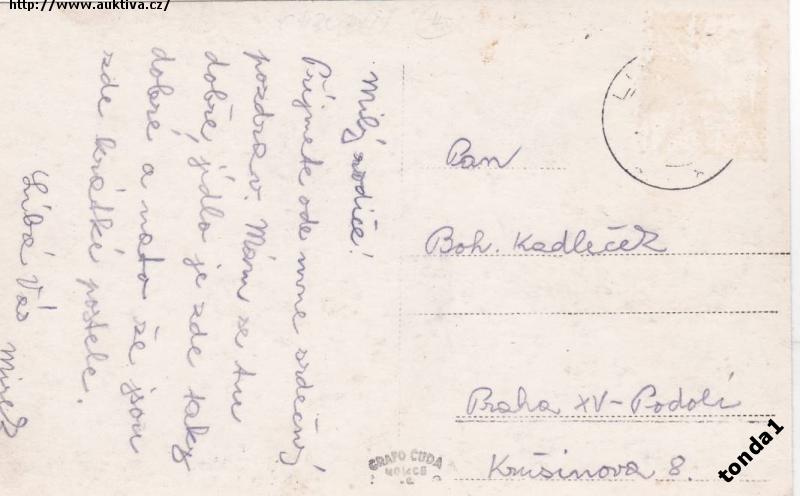 http://www.auktiva.cz/
Milý rodiče!
Příjmete ode mne srdečný
pozdrav. Mám se tu
dobře, jídlo je zde taky
dobré a nato že jsou
zde krátké postele.
Líbá Vás
Mirek
Pan
Boh. Kadleček
Praha XV-Podolí
Krušinova 8.
GRAFO ČUDA
HOLICE
tonda1